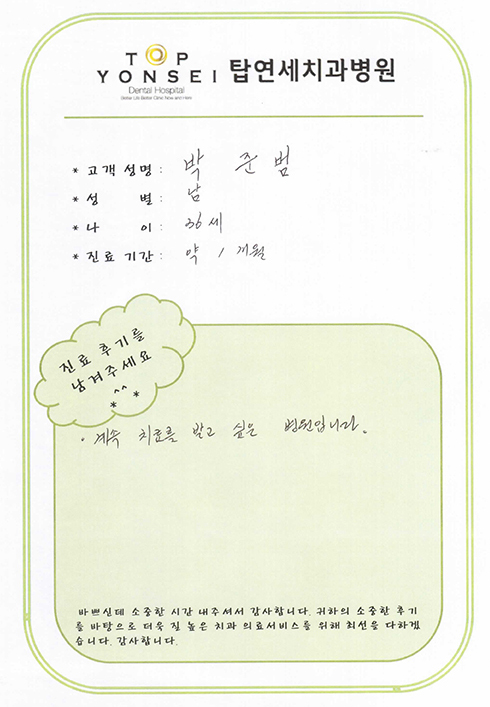 TOP
YONSEI 탑연세치과병원
Dental Hospital
Better Life Better Clinic Now and Here
* 고객성명 : 박 준 범
* 성 별 : 남
* 나 이 : 36세
* 진료기간 : 약 1개월
진료 후기를
남겨주세요
^^
* *
· 계속 치료를 받고 싶은 병원입니다.
바쁘신데 소중한 시간 내주셔서 감사합니다. 귀하의 소중한 후기
를 바탕으로 더욱 질 높은 치과 의료서비스를 위해 최선을 다하겠
습니다. 감사합니다.